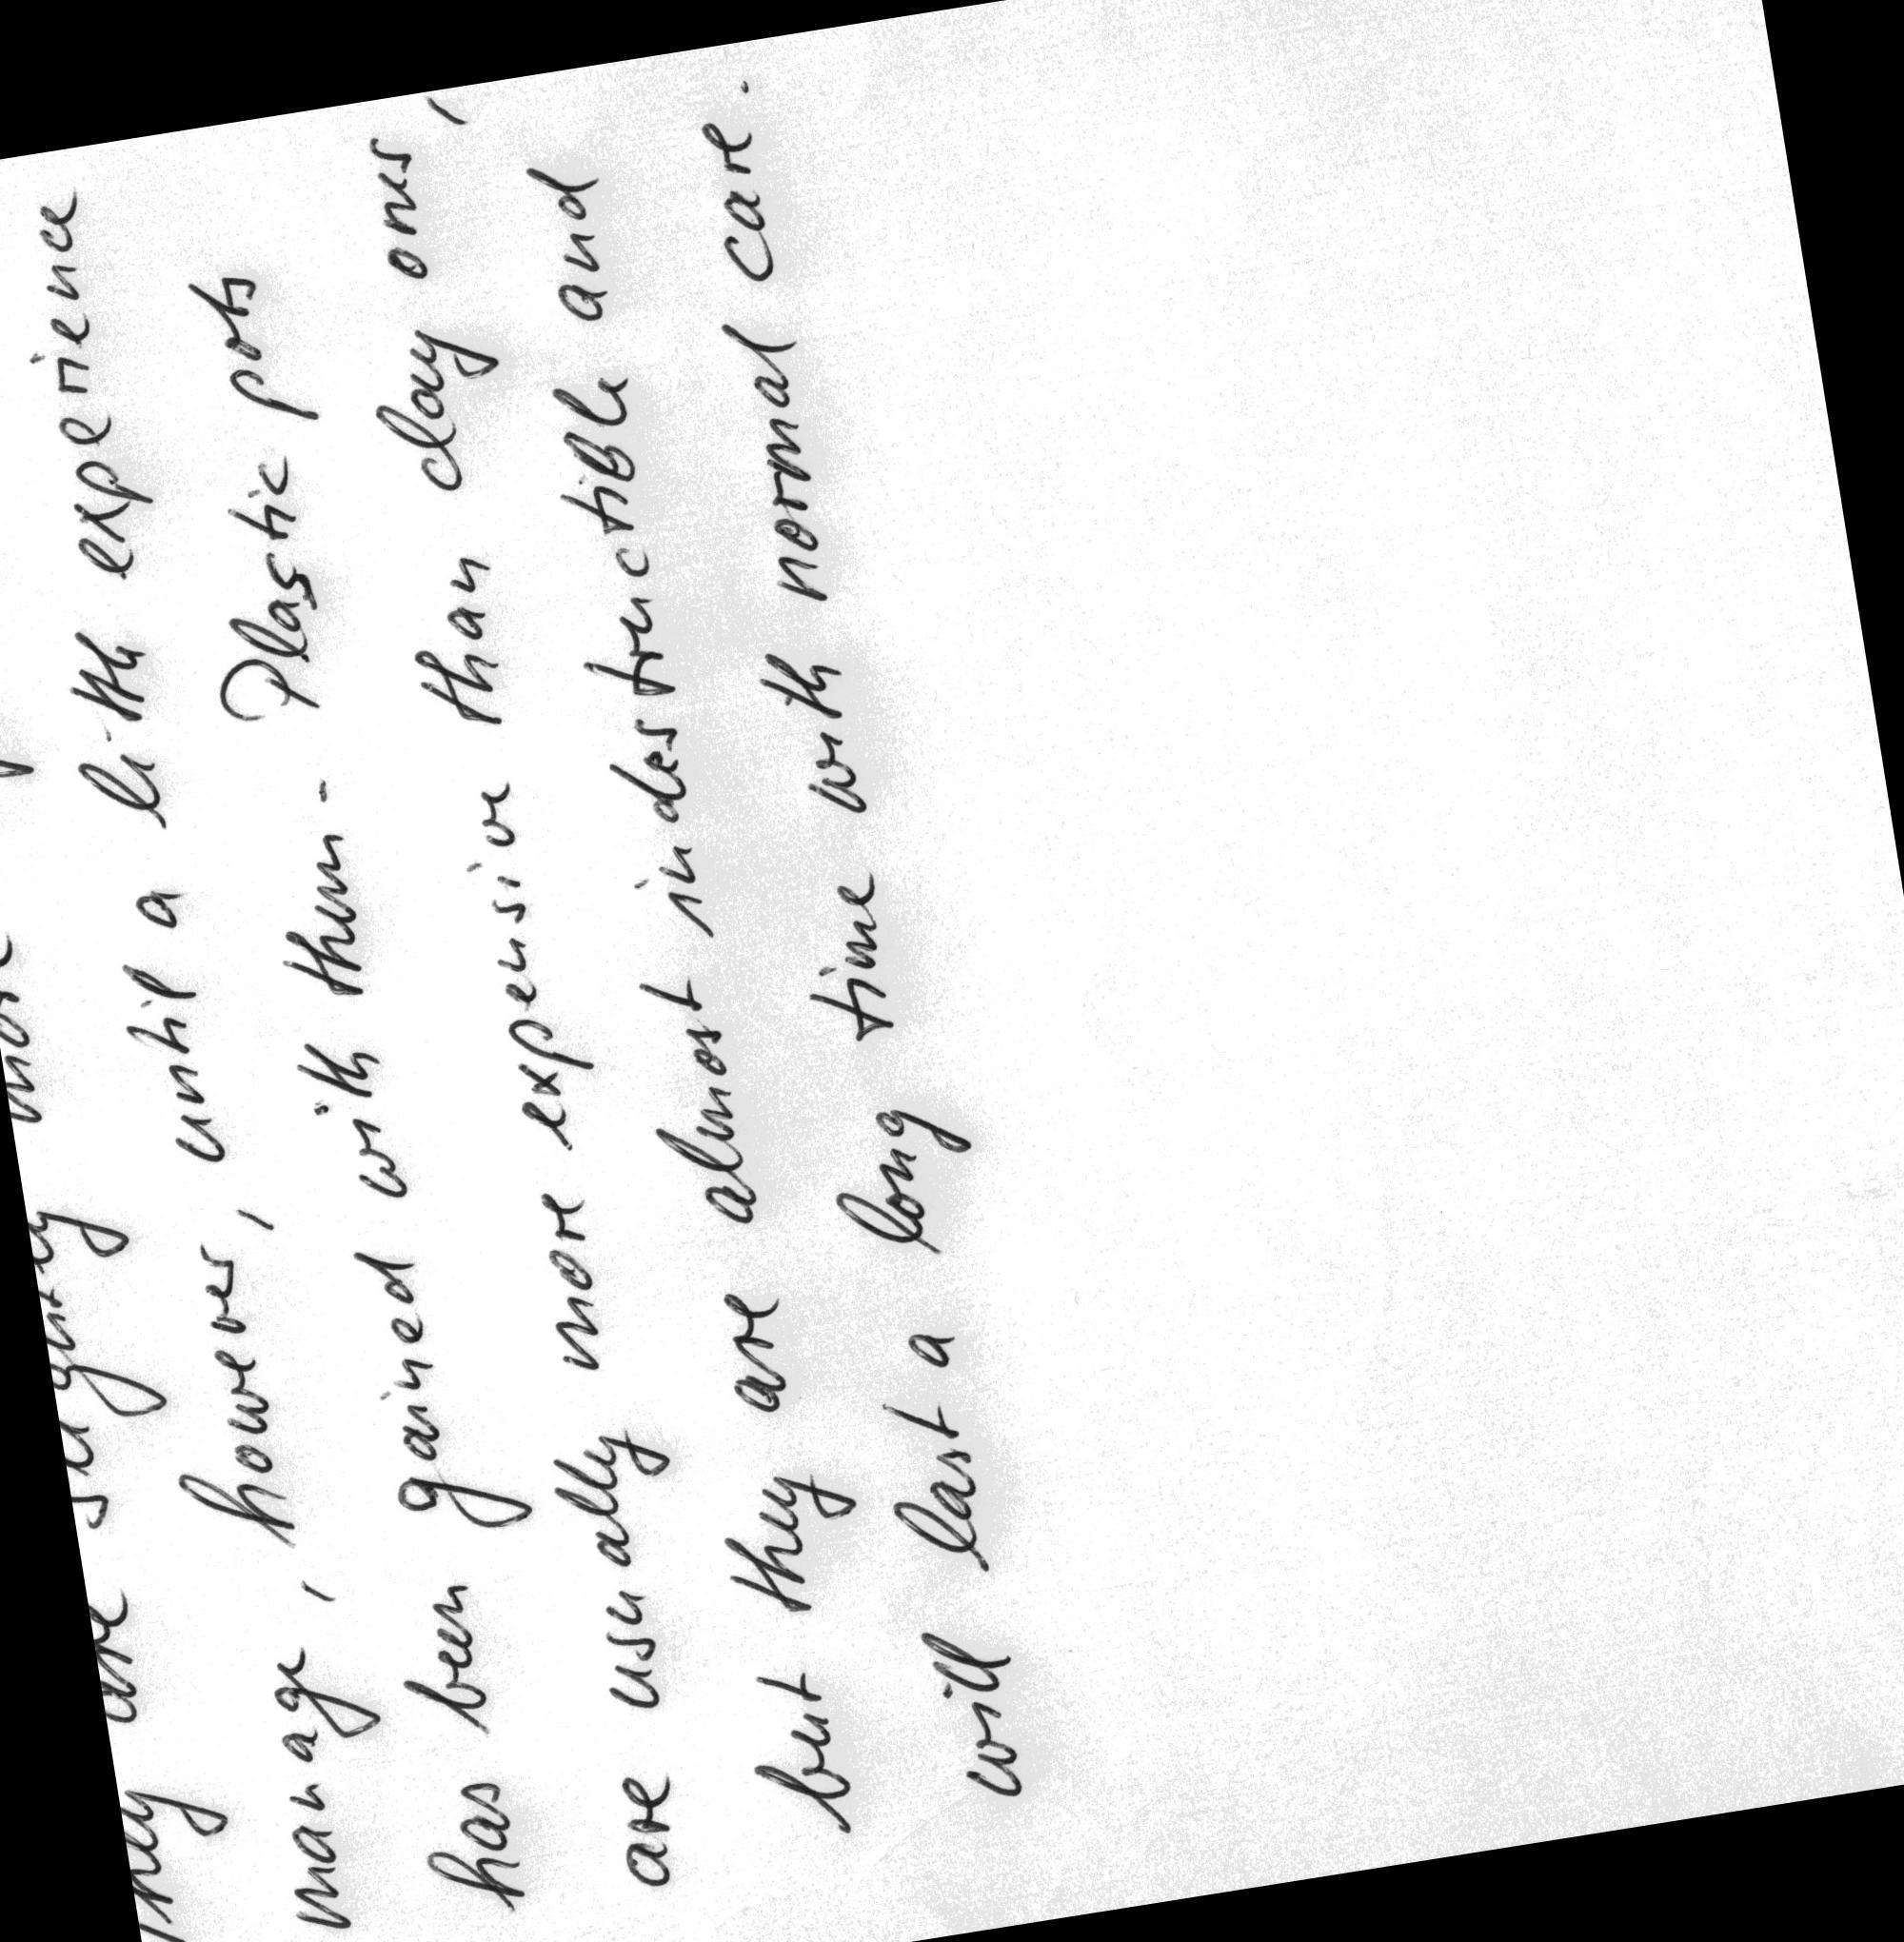 they are slightly more
manage, however, until a little experience
has been gained with them. Plastic pots
are usually more expensive than clay ones,
but they are almost indestructible and
will last a long time with normal care.